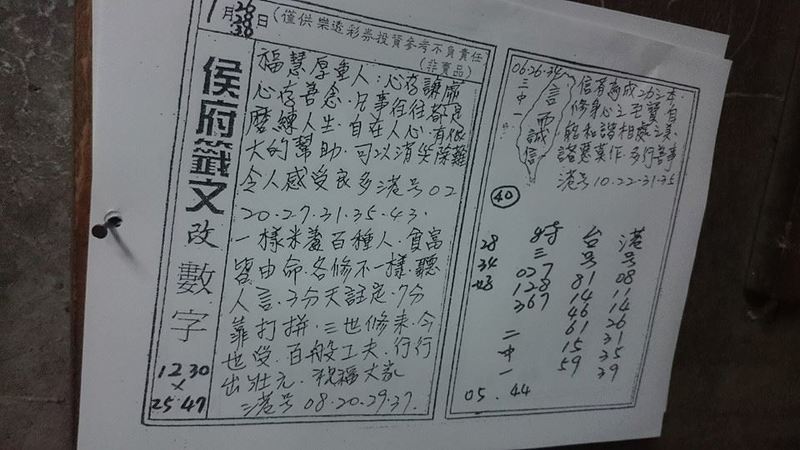 1月26 28 30日(僅供樂透彩券投資參考不負責任
(非賣品)
侯府籤文
改
數
字
12 30
×
25 47
福慧厚重人:心存謙常
心存善念.凡事往往都是
磨練人生.自在人心.有很
大的幫助.可以消災除難
令人感受良多港号02
20.27.31.35.43.
一樣米養百種人.貧富
皆由命.各修不一樣.聽
人言.3分天註定.7分
靠打拼.三世修来.今
也受.百般工夫.行行
出狀元.祝福大家
港号 08.20.29.37.
06.26.34
三中一
言而誠信
信有為成功之本
修身心之宅寶自
能和諧相處之美
諸惡莫作.多行善事
港号10.22.31.35
40
港号 08 14 26 31 35 39
台号 81 14 46 61 15 59
特三 027 128 367
28 34 48
二中一
05.44